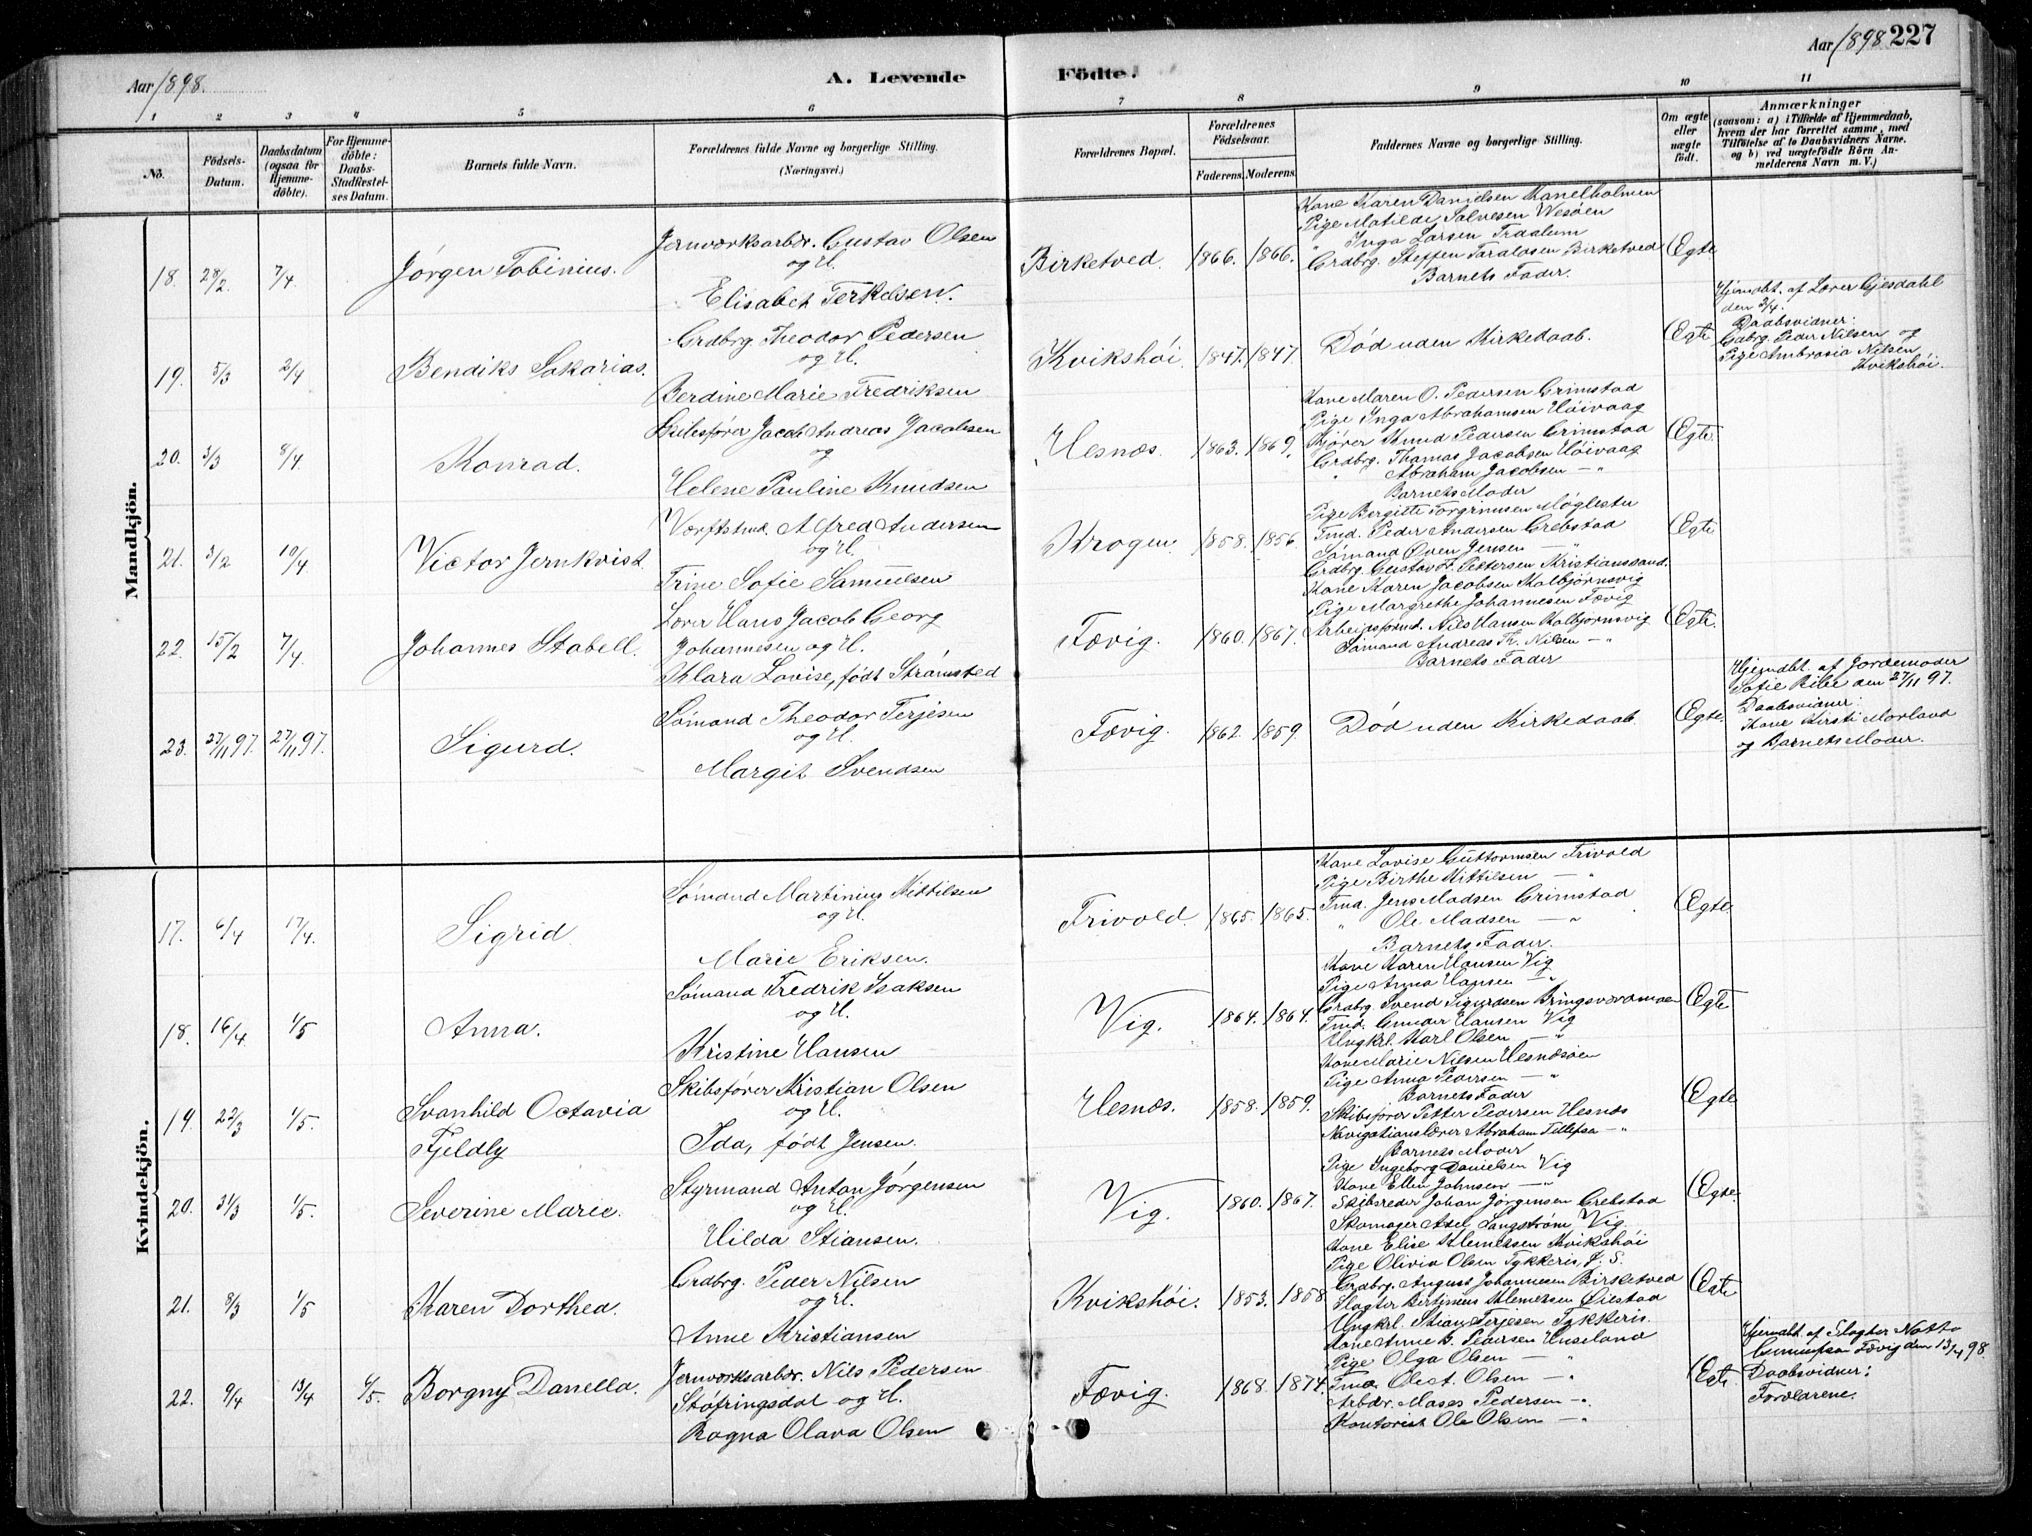 Aar 1898.
A. Levende
Födte.
Aar 1898 227
1 2 3 4 5 6 7 8 9 10 11
No.
Födsels-Datum.
Daabsdatum (ogsaa for Hjemme-döbte).
For Hjemme-döbte: Daabs-Stadfæstel-ses Datum.
Barnets fulde Navn.
Forældrenes fulde Navne og borgerlige Stilling.
(Næringsvei.)
Forældrenes Bopæl.
Forældrenes Födselsaar.
Faderens. Moderens.
Faddernes Navne og borgerlige Stilling.
Om ægte eller uægte födt.
Anmærkninger
(saasom: a) i Tilfælde af Hjemmedaab, hvem der har forrettet samme, med Tilföielse af to Daabsvidners Navne. og b) ved uægtefödte Börn An-melderens Navn m. V.)
Mandkjön.
18. 28/2 7/4. Jørgen Tobinius.
Jernværksarbdr. Gustav Olsen
og H.
Elisabet Terkelsen.
Birketved. 1866. 1866.
Kone Karen Danielsen Kanelholmen
Pige Matilde Salvesen Wesøen
" Inga Larsen Traalum
Grdbrg. Steffen Taraldsen Birketved
Barnets Fader.
Egte
19. 5/3 2/4 Bendiks Sakarias.
Grdbrg. Theodor Pedersen
og H.
Berdine Marie Fredriksen
Kvikshøi. 1847. 1847
Død uden Kirkedaab.
Egte
Hjemdbt. af Lærer Gjesdahl
den 2/4.
Daabsvidner:
Gdbrg. Peder Nilsen og
Pige Ambrosia Nilsen
Kvikshøi.
20. 3/3 8/4. Konrad.
Skibsfører Jacob Andreas Jacobsen
og
Helene Pauline Knudsen
Hesnæs. 1863. 1869.
Kone Maren O. Pedersen Grimstad
Pige Inga Abrahamsen Høivaag
Knud Pedersen Grimstad
Grdbrg. Thomas Jacobsen Høivaag
" Abraham Jacobsen — "
Barnets Moder
Egte.
21. 3/2 10/4 Victor Jernkvist.
Værftstmd. Alfred Andersen
og H.
Trine Sofie Samuelsen
Krogen. 1858. 1856.
Pige Bergitte Torgrimsen Møglestu
Tmd. Peder Andersen Grebstad
Sømand Oven Jensen — "
Grdbrg. Gustav F. Pettersen Kristianssand.
Egte
22. 15/2 7/4. Johannes Stabell.
Lærer Hans Jacob Georg
Johannesen og H.
Klara Lovise, født Strømsted
Fævig. 1860. 1867.
Kone Karen Jacobsen Kalbjørnsvig
Pige Margrethe Johannesen Fævig
Arbeidsfrmd. Nils Hansen Kalbjørnsvig
Sømand Andreas Th. Nilsen — "
Barnets Fader
Egte.
23. 27/11 97. 27/11 97. Sigurd.
Sømand Theodor Terjesen
og H.
Margit Svendsen
Fævig. 1862. 1859.
Død uden Kirkedaab.
Egte.
Hjemdbt. af Jordemoder
Sofie Ribe den 27/11 97.
Daabsvidner:
Kone Kirsti Morland
og Barnets Moder.
Kvindekjön.
17. 6/4 17/4. Sigrid
Sømand Martinius Kittilsen
og H.
Marie Eriksen.
Trivold. 1865. 1865.
Kone Lovise Guttormsen Trivold
Pige Birthe Kittilsen — "
Tmd. Jens Madsen Grimstad
" Ole Madsen — "
Barnets Fader.
Egte.
18. 16/4 1/5 Anna.
Sømand Fredrik Isaksen
og H.
Kristine Hansen
Vig. 1864. 1864.
Kone Karen Hansen Vig
Pige Anna Hansen — "
Grdbrg. Svend Sigurdsen Bringsværmoen
Tmd. Gunder Hansen Vig
Ungkrl. Karl Olsen — "
Egte
19. 22/3 1/5. Svanhild Octavia
Fjeldly
Skibsfører Kristian Olsen
og H.
Ida, født Jensen.
Hesnæs. 1858. 1859.
Kone Marie Nilsen Hesnæsøen
Pige Anna Pedersen — "
Barnets Fader
Skibsfører Petter Pedersen Hesnæs
Navigationslærer Abraham Tellefsen — "
Barnets Moder
Egte
20. 31/3 1/5. Severine Marie.
Styrmand Anton Jørgensen
og H.
Hilda Stiansen.
Vig. 1860. 1867.
Pige Ingeborg Danielsen Vig
Kone Ellen Johnsen — "
Skibsreder Johan Jørgensen Grebstad
Skomager Axel Langstrøm Vig
Egte.
21. 8/3 1/5 Karen Dorthea.
Grdbrg. Peder Nilsen
og H.
Anne Kristiansen
Kvikshøi. 1853. 1858.
Kone Elise Klemetsen Kvikshøi
Pige Olivia Olsen Tykkeris, F. S.
Grdbrg. August Johannesen Birketved
Slagter Bertinius Klemetsen Øiestad
Ungkrl. Stian Terjesen Tykkeris.
Egte
22. 9/4 13/4 1/5. Borgny Danella.
Jernværksarbdr. Nils Pedersen
Støfringsdal og H.
Ragna Olava Olsen
Fævig. 1868. 1874.
Kone Anne B. Pedersen Huseland
Pige Olga Olsen — "
Tmd. Olest. Olsen — "
Arbdr. Moses Pedersen — "
Kontorist Ole Olsen — "
Egte
Hjemdbt. af Slagter Notto
Gunnufsen Fævig den 13/4 98.
Daabsvidner:
Forældrene.